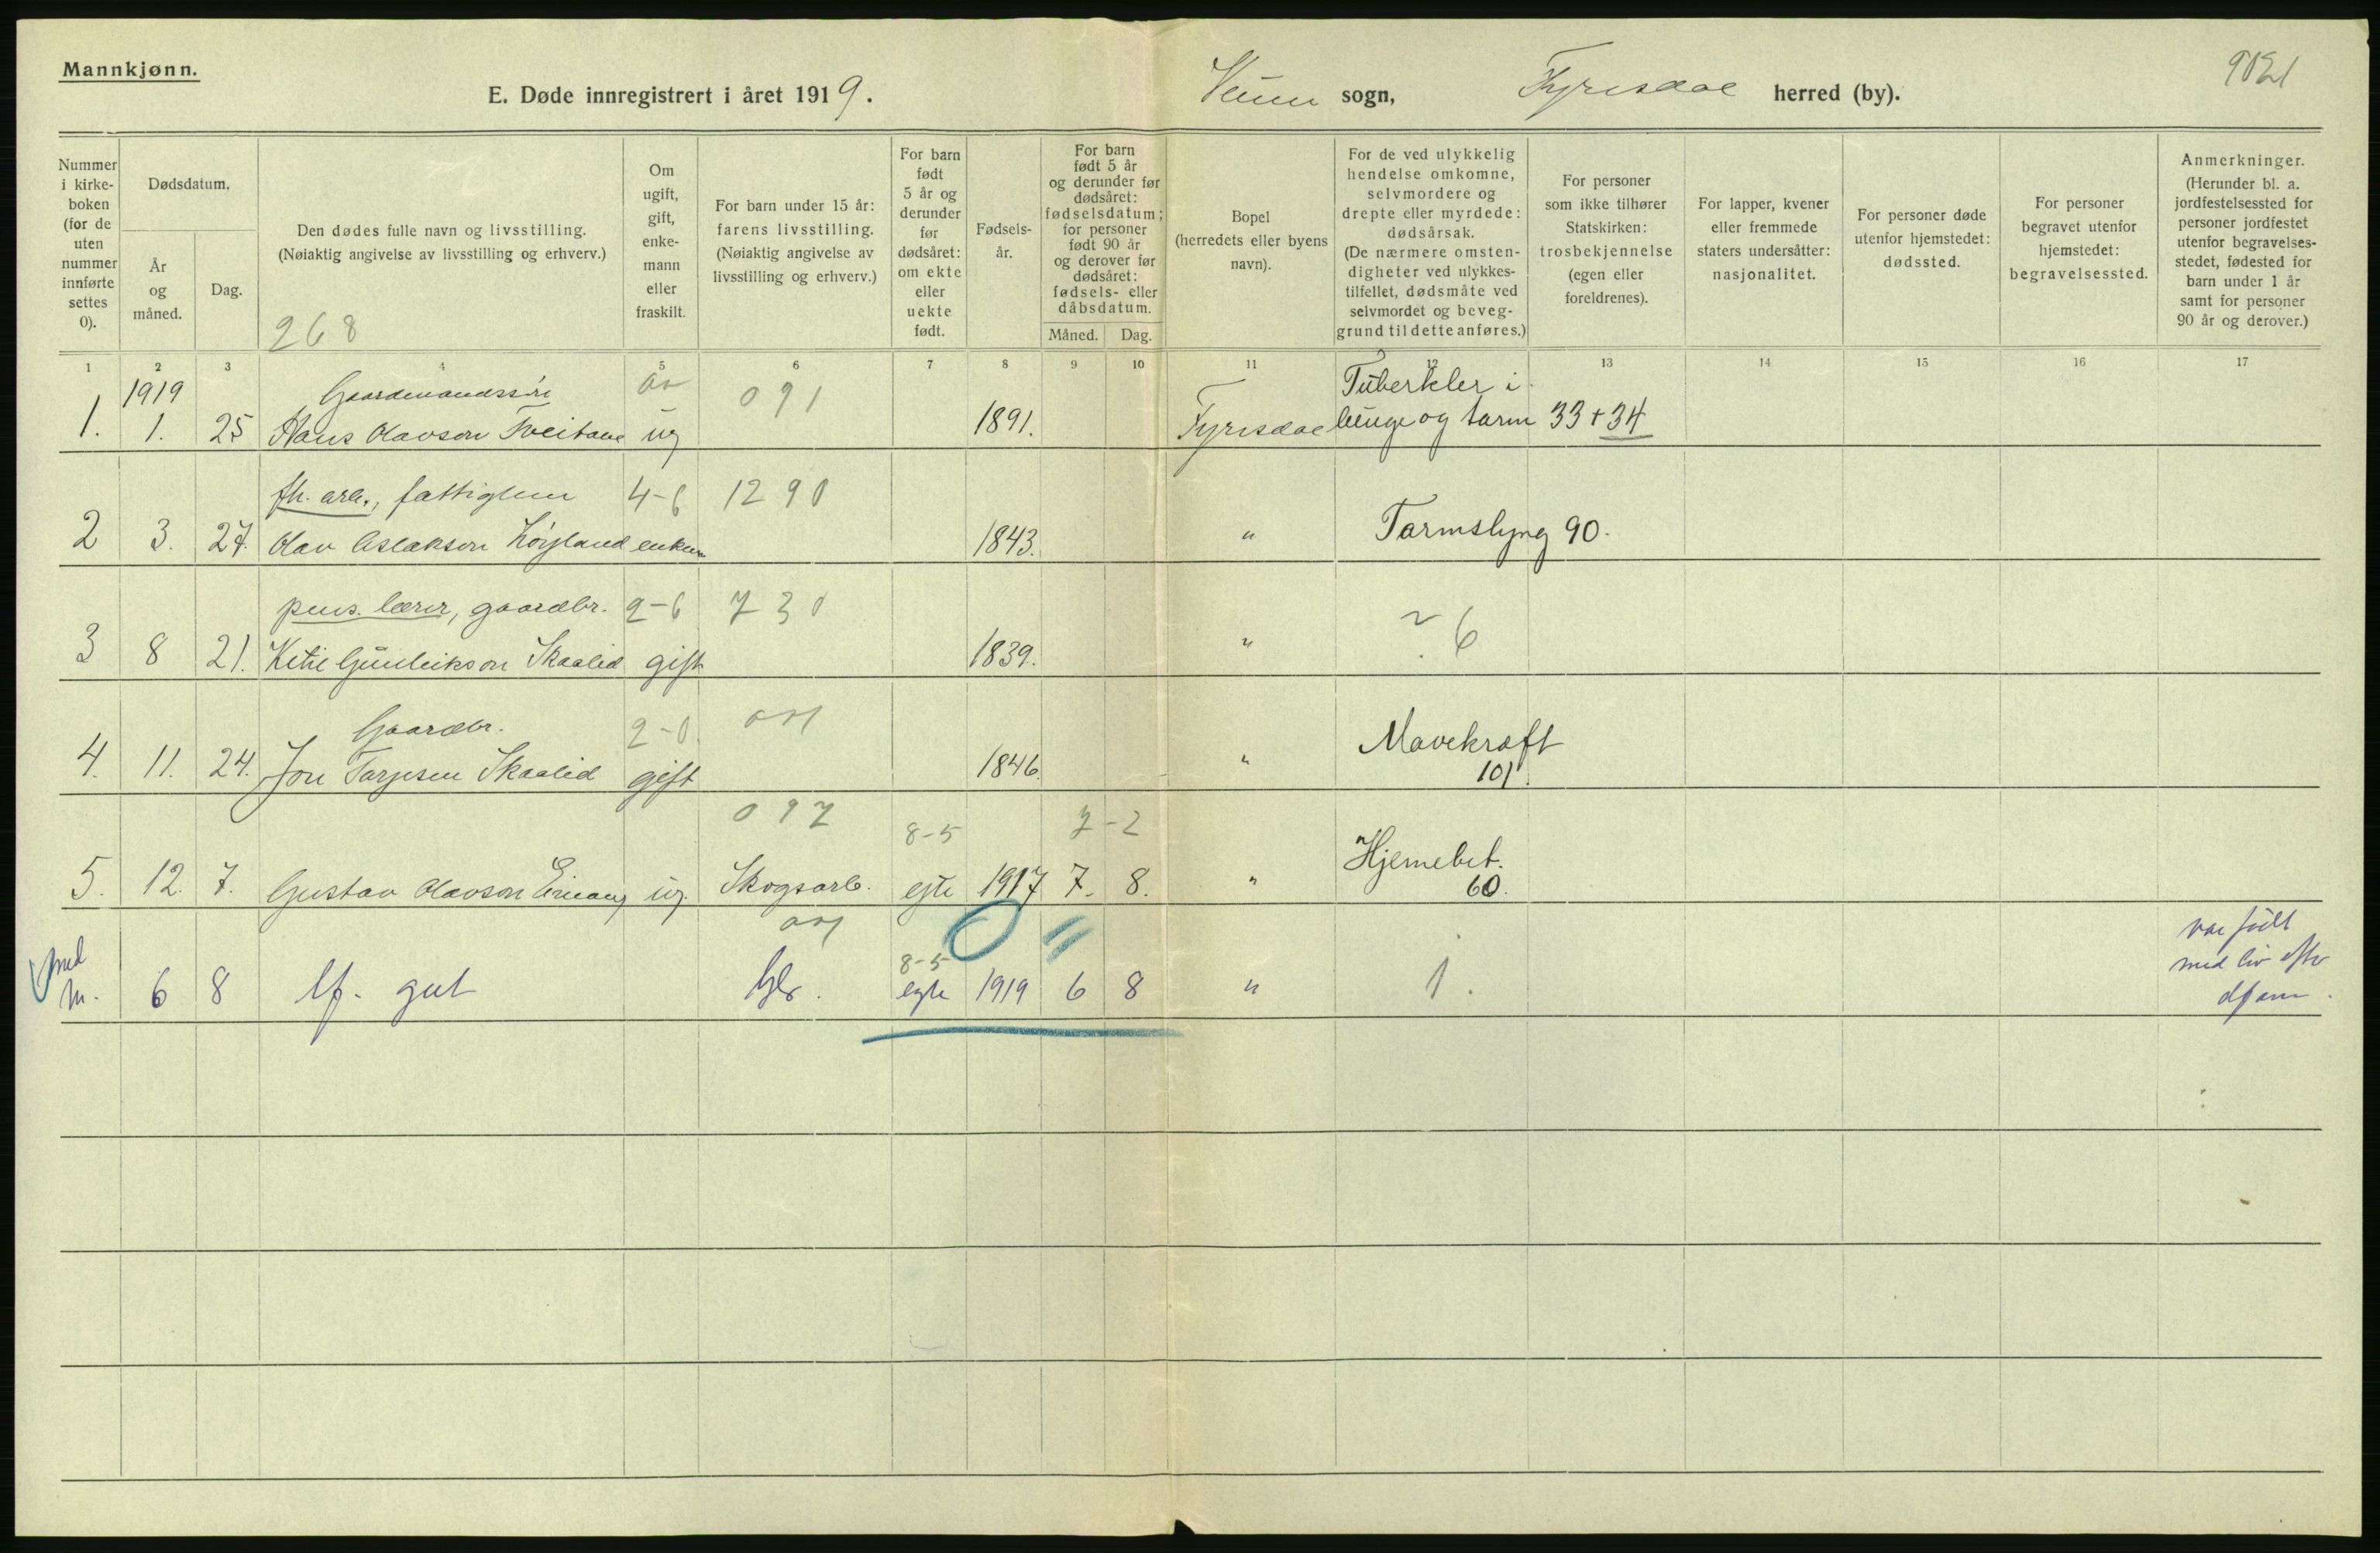 Mannkjønn.
E. Døde innregistrert i året 1919.
Veum sogn, Fyresdal herred (by).
Nummer i kirkeboken (for de uten nummer innførte settes 0).
Dødsdatum.
År og måned.
Dag.
Den dødes fulle navn og livsstilling.
(Nøiaktig angivelse av livsstilling og erhverv.)
268
Om ugift, gift, enkemann eller fraskilt.
For barn under 15 år: farens livsstilling.
(Nøiaktig angivelse av livsstilling og erhverv.)
For barn født 5 år og derunder før dødsåret: om ekte eller uekte født.
Fødselsår.
For barn født 5 år og derunder før dødsåret: fødselsdatum; for personer født 90 år og derover før dødsåret: fødsels- eller dåbsdatum.
Måned. Dag.
Bopel (herredets eller byens navn).
For de ved ulykkelig hendelse omkomne, selvmordere og drepte eller myrdede: dødsårsak.
(De nærmere omstendigheter ved ulykkestilfellet, dødsmåte ved selvmordet og beveggrund til dette anføres.)
For personer som ikke tilhører Statskirken: trosbekjennelse (egen eller foreldrenes).
For lapper, kvener eller fremmede staters undersåtter: nasjonalitet.
For personer døde utenfor hjemstedet: dødssted.
For personer begravet utenfor hjemstedet: begravelsessted.
Anmerkninger.
(Herunder bl. a. jordfestelsessted for personer jordfestet utenfor begravelsesstedet, fødested for barn under 1 år samt for personer 90 år og derover.)
1 2 3 4 5 6 7 8 9 10 11 12 13 14 15 16 17
1919 Gaardmandssøn 091 Tuberkler i
1. 1. 25 Hans Olavson Tveitane ug 1891. Fyrisdal lunge og tarm 33+34
fh. arb., fattiglem 4-6 1290
2 3. 27. Olav Aslakson Høyland enkem 1843. " Tarmslyng 90.
pens. lærer, gaardbr. 2-6 730
3 8 21. Ketil Gunleikson Skaalid gift 1839. " ? 6
Gaardbr. 2-0
4. 11. 24. Jon Tarjesen Skaalid gift 1846. " Mavekræft
101.
097 8-5 7-2
5. 12. 7. Gustav Olavson ug. Skogsarb. egte 1917 7. 8. " Hjernebet.
60.
8-5
6 8 Uf. gut Gbr. egte 1919 6 8 " 1.
var født
med liv efter